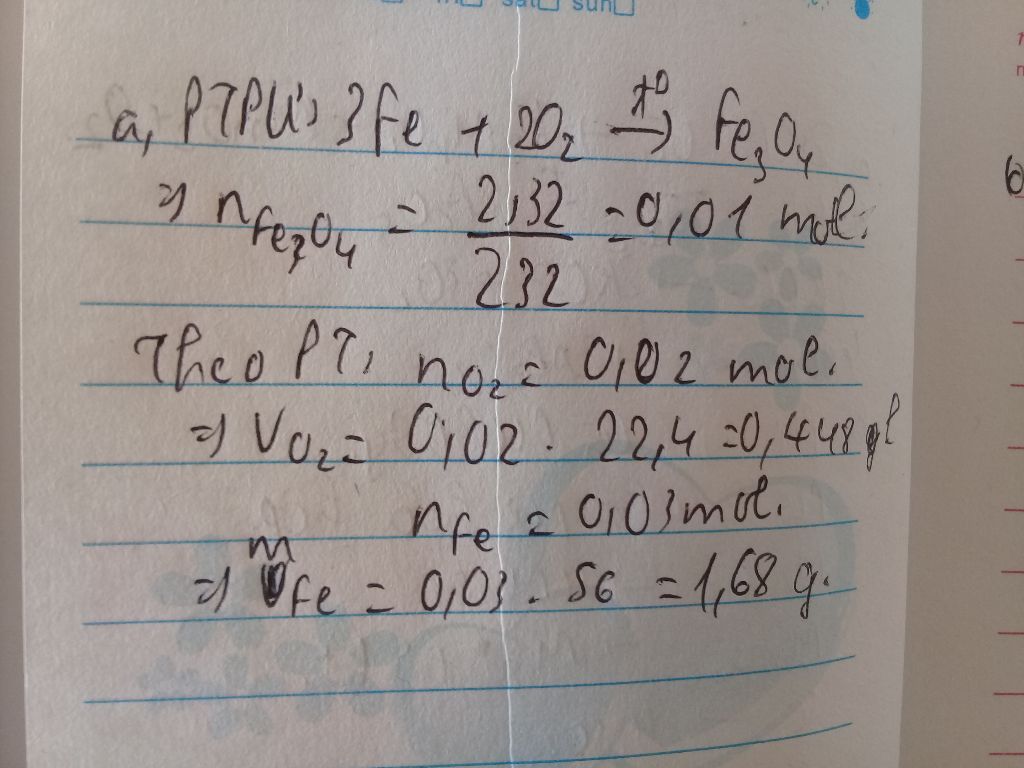 sat□ sun□
a, PTPƯ: 3Fe + 2O₂ —t⁰→ Fe₃O₄
⇒ nFe₃O₄ = 2,32/232 = 0,01 mol.
Theo PT, nO₂ = 0,02 mol.
⇒ VO₂ = 0,02 . 22,4 = 0,448 l
nFe = 0,03 mol.
⇒ mFe = 0,03 . 56 = 1,68 g.